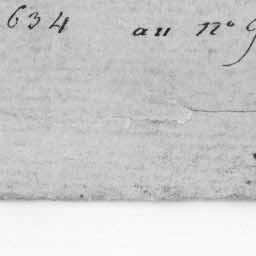 634 au nº 9